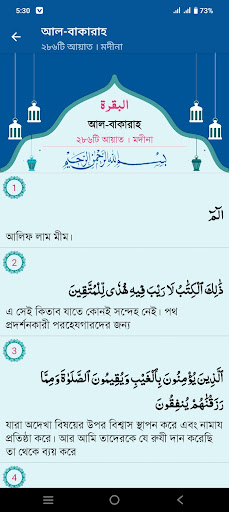 5:30
73%
আল-বাকারাহ
২৮৬টি আয়াত । মদীনা
البقرة
আল-বাকারাহ
২৮৬টি আয়াত । মদীনা
بِسْمِ اللهِ الرَّحْمٰنِ الرَّحِيْمِ
1
الٓمٓ
আলিফ লাম মীম।
2
ذَٰلِكَ الْكِتَٰبُ لَا رَيْبَ فِيهِ هُدًى لِّلْمُتَّقِينَ
এ সেই কিতাব যাতে কোনই সন্দেহ নেই। পথ
প্রদর্শনকারী পরহেযগারদের জন্য
3
الَّذِينَ يُؤْمِنُونَ بِالْغَيْبِ وَيُقِيمُونَ الصَّلَوٰةَ وَمِمَّا
رَزَقْنَٰهُمْ يُنفِقُونَ
যারা অদেখা বিষয়ের উপর বিশ্বাস স্থাপন করে এবং নামায
প্রতিষ্ঠা করে। আর আমি তাদেরকে যে রুযী দান করেছি
তা থেকে ব্যয় করে
4